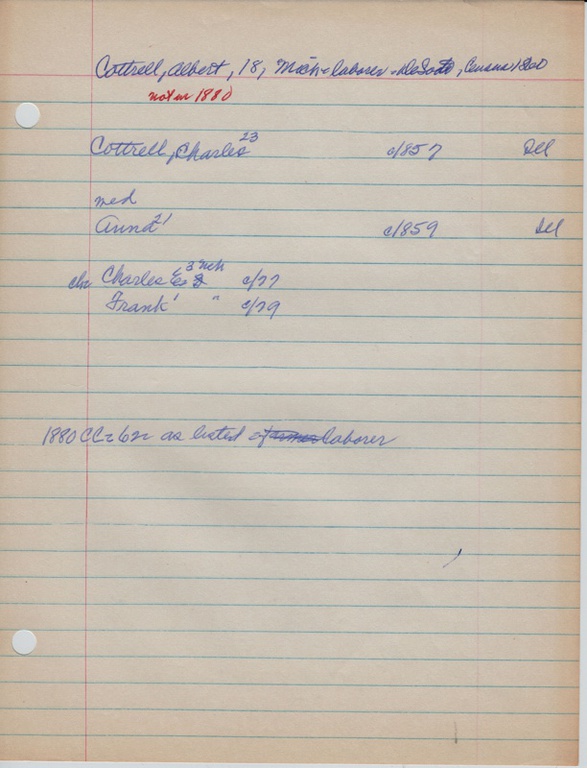 Cottrell, Albert, 18, Mich - laborer - DeSoto, Census 1860
not in 1880
Cottrell, Charles 23 c/857 Del
med
Anna 21 c/859 Del
chn Charles E 3 Neb c/77
Frank 1 " c/79
1880 CC as listed farmer laborer